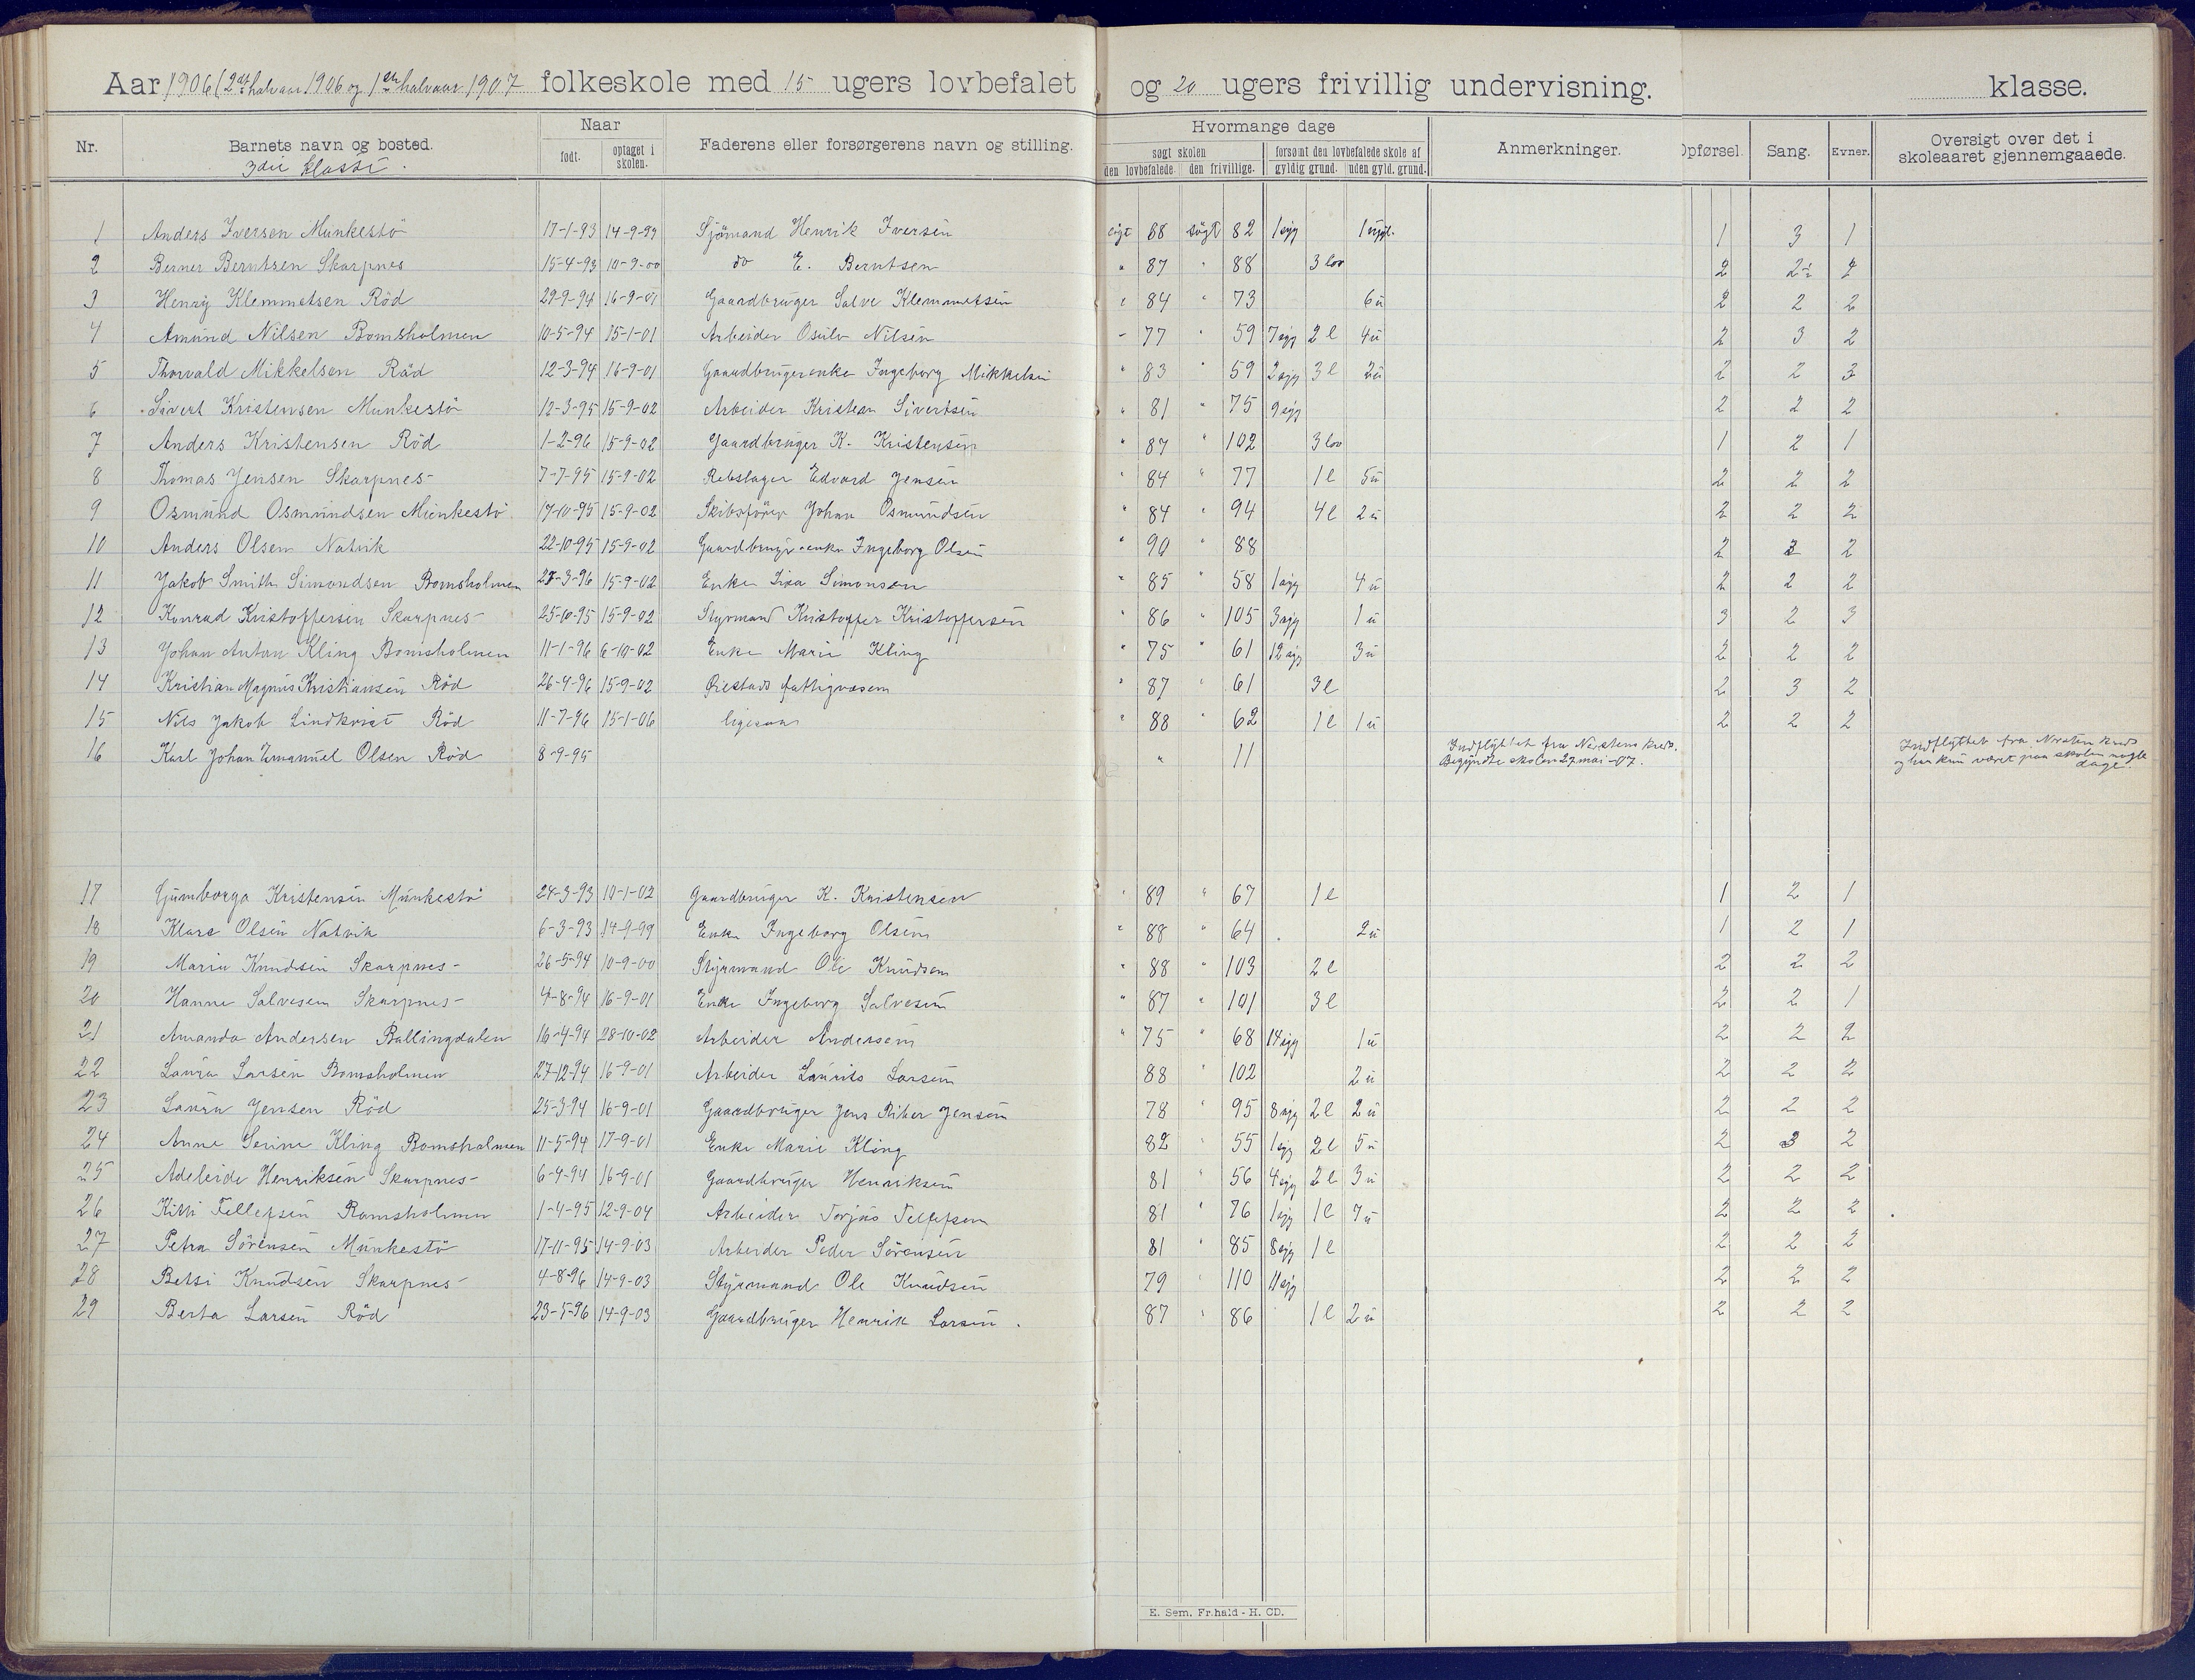 Aar 1906 (2det halvaar 1906 og 1ste halvaar 1907 folkeskole med 15 ugers lovbefalet og 20 ugers frivillig undervisning. klasse.
Nr. Barnets navn og bosted. Naar født. optaget i skolen. Faderens eller forsørgerens navn og stilling. Hvormange dage søgt skolen den lovbefalede. den frivillige. forsømt den lovbefalede skole af gyldig grund. uden gyld. grund. Anmerkninger. Opførsel. Sang. Evner. Oversigt over det i skoleaaret gjennemgaaede.
3die klasse.
1 Anders Iversen Munkestö 17-1-93 14-9-99 Sjömand Henrik Iversen 88 søgt 82 1 syg 1 ugyl. 1 3 1
2 Berner Berntsen Skarpnes 15-4-93 10-9-00 do E. Berntsen " 87 " 88 3 lov 2 2
3 Henry Klemmetsen Röd 29-9-94 16-9-01 Gaardbruger Salve Klemmetsen " 84 " 73 6 u 2 2 2
4 Amund Nilsen Bomsholmen 10-5-94 15-1-01 Arbeider Osulv Nilsen " 77 " 59 7 syg 2 l 4 u 2 3 2
5 Thorvald Mikkelsen Röd 12-3-94 16-9-01 Gaardbrugerenke Ingeborg Mikkelsen " 83 " 59 2 syg 3 l 2 u 2 2 3
6 Sivert Kristensen Munkestö 12-3-95 15-9-02 Arbeider Kristian Sivertsen " 81 " 75 9 syg 2 2 2
7 Anders Kristensen Röd 1-2-96 15-9-02 Gaardbruger K. Kristensen " 87 " 102 3 lov 1 2 1
8 Thomas Jensen Skarpnes 7-7-95 15-9-02 Rebslager Edvard Jensen " 84 " 77 1 l 5 u 2 2 2
9 Osmund Osmundsen Munkestö 17-10-95 15-9-02 Skibsfører Johan Osmundsen " 84 " 94 4 l 2 u 2 2 2
10 Anders Olsen Natvik 22-10-95 15-9-02 Gaardbrugerenke Ingeborg Olsen " 90 " 88 2 3 2
11 Jakob Smith Simondsen Bomsholmen 15-9-02 Enke Simonsen " 85 " 58 1 syg 4 u 2 2 2
12 Konrad Kristoffersen Skarpnes 25-10-95 15-9-02 Styrmand Kristoffer Kristoffersen " 86 " 105 3 syg 1 u 3 2 3
13 Johan Anton Kling Bomsholmen 11-1-96 6-10-02 Enke Marie Kling " 75 " 61 12 syg 3 u 2 2 2
14 Kristian Magnus Kristiansen Röd 26-4-96 15-9-02 Øiestads fattigvæsen " 87 " 61 3 l 2 3 2
15 Nils Jakob Lindkvist Röd 11-7-96 15-1-06 ligesaa " 88 " 62 1 l 1 u 2 2 2
16 Karl Johan Emanuel Olsen Röd 8-9-95 " 11 Indflyttet fra Nersten kreds. Indflyttet fra Nersten kreds
Begyndte skolen 27 mai -07. og har kun været paa skolen nogle
dage.
17 Gumborga Kristensen Munkestö 24-3-93 10-1-02 Gaardbruger K. Kristensen " 89 " 67 1 l 1 2 1
18 Klara Olsen Natvik 6-3-93 14-9-99 Enke Ingeborg Olsen " 88 " 64 2 u 1 2 1
19 Maria Knudsen Skarpnes 26-5-94 10-9-00 Styrmand Ole Knudsen " 88 " 103 2 l 2 2 2
20 Hanne Salvesen Skarpnes 4-8-94 16-9-01 Enke Ingeborg Salvesen " 87 " 101 3 l 2 2 1
21 Amanda Andersen Ballingdalen 16-4-94 28-10-02 Arbeider Andersen " 75 " 68 14 syg 1 u 2 2 2
22 Laura Larsen Bomsholmen 27-12-94 16-9-01 Arbeider Laurits Larsen 88 " 102 2 u 2 2 2
23 Laura Jensen Röd 25-3-94 16-9-01 Gaardbruger Jens Riber Jensen 78 " 95 8 syg 2 l 2 u 2 2 2
24 Anne Serine Kling Bomsholmen 11-5-94 17-9-01 Enke Marie Kling 82 " 55 1 syg 2 l 5 u 2 3 2
25 Adeleide Henriksen Skarpnes 6-4-94 16-9-01 Gaardbruger Henriksen 81 " 56 4 syg 2 l 3 u 2 2 2
26 Kitti Tellefsen Bomsholmen 1-4-95 12-9-04 Arbeider Torjus Tellefsen 81 " 76 1 syg 1 l 7 u 2 2 2
27 Petra Sörensen Munkestö 17-11-95 14-9-03 Arbeider Peder Sörensen 81 " 85 8 syg 1 l 2 2 2
28 Betsi Knudsen Skarpnes 4-8-96 14-9-03 Styrmand Ole Knudsen 79 " 110 11 syg 2 2 2
29 Berta Larsen Röd 23-5-96 14-9-03 Gaardbruger Henrik Larsen. 87 " 86 1 l 2 u 2 2 2
E. Sem, Fr.hald - H. CD.